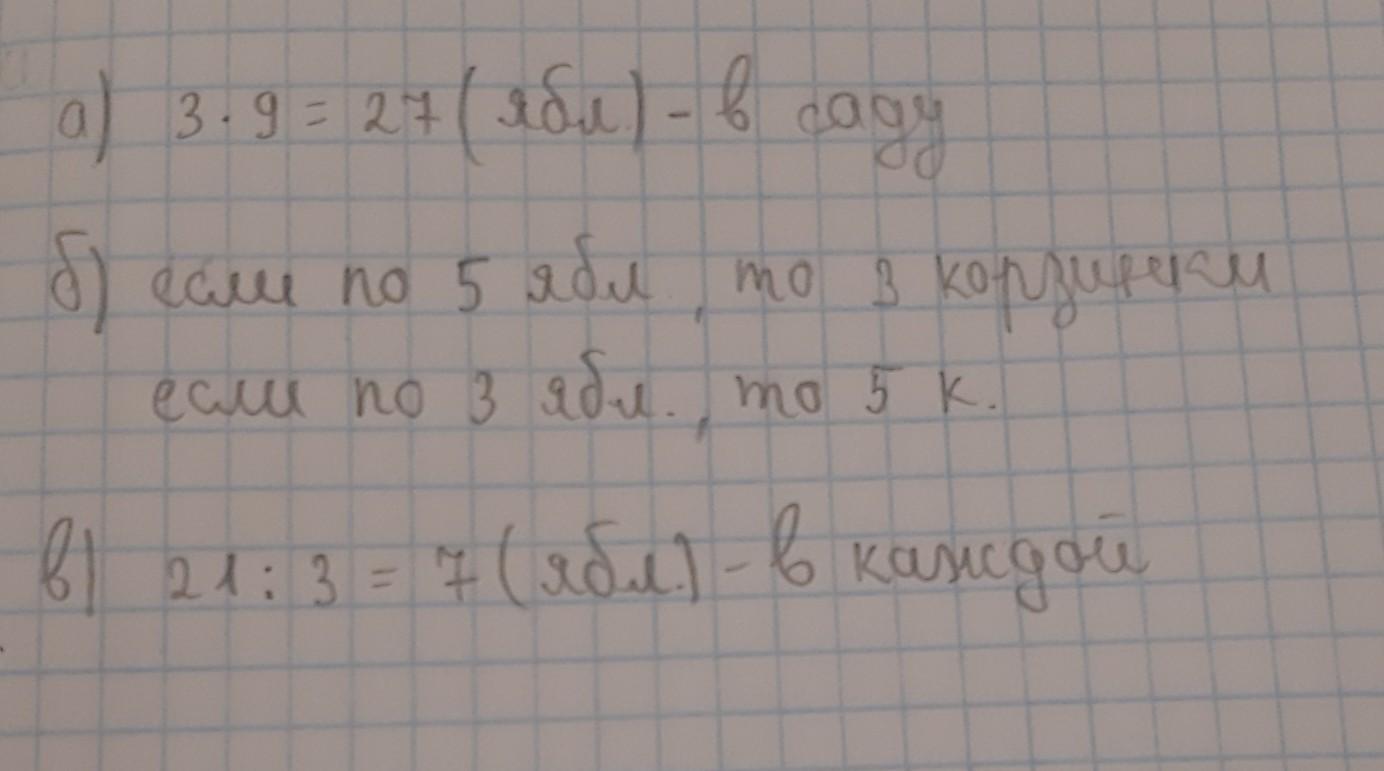 а) 3 · 9 = 27 (ябл.) - в саду
б) если по 5 ябл., то 3 корзинки
если по 3 ябл., то 5 к.
в) 21 : 3 = 7 (ябл.) - в каждой